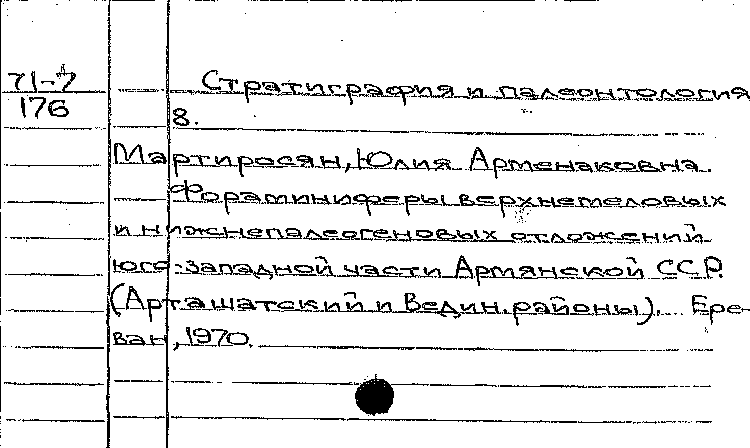 71-7
176
Стратиграфия и палеонтология
8.
Мартиросян, Юлия Арменаковна.
Фораминиферы верхнемеловых
и нижнепалеогеновых отложений
юго-западной части Армянской ССР.
(Арташатский и Ведин. районы). Ере-
ван, 1970.